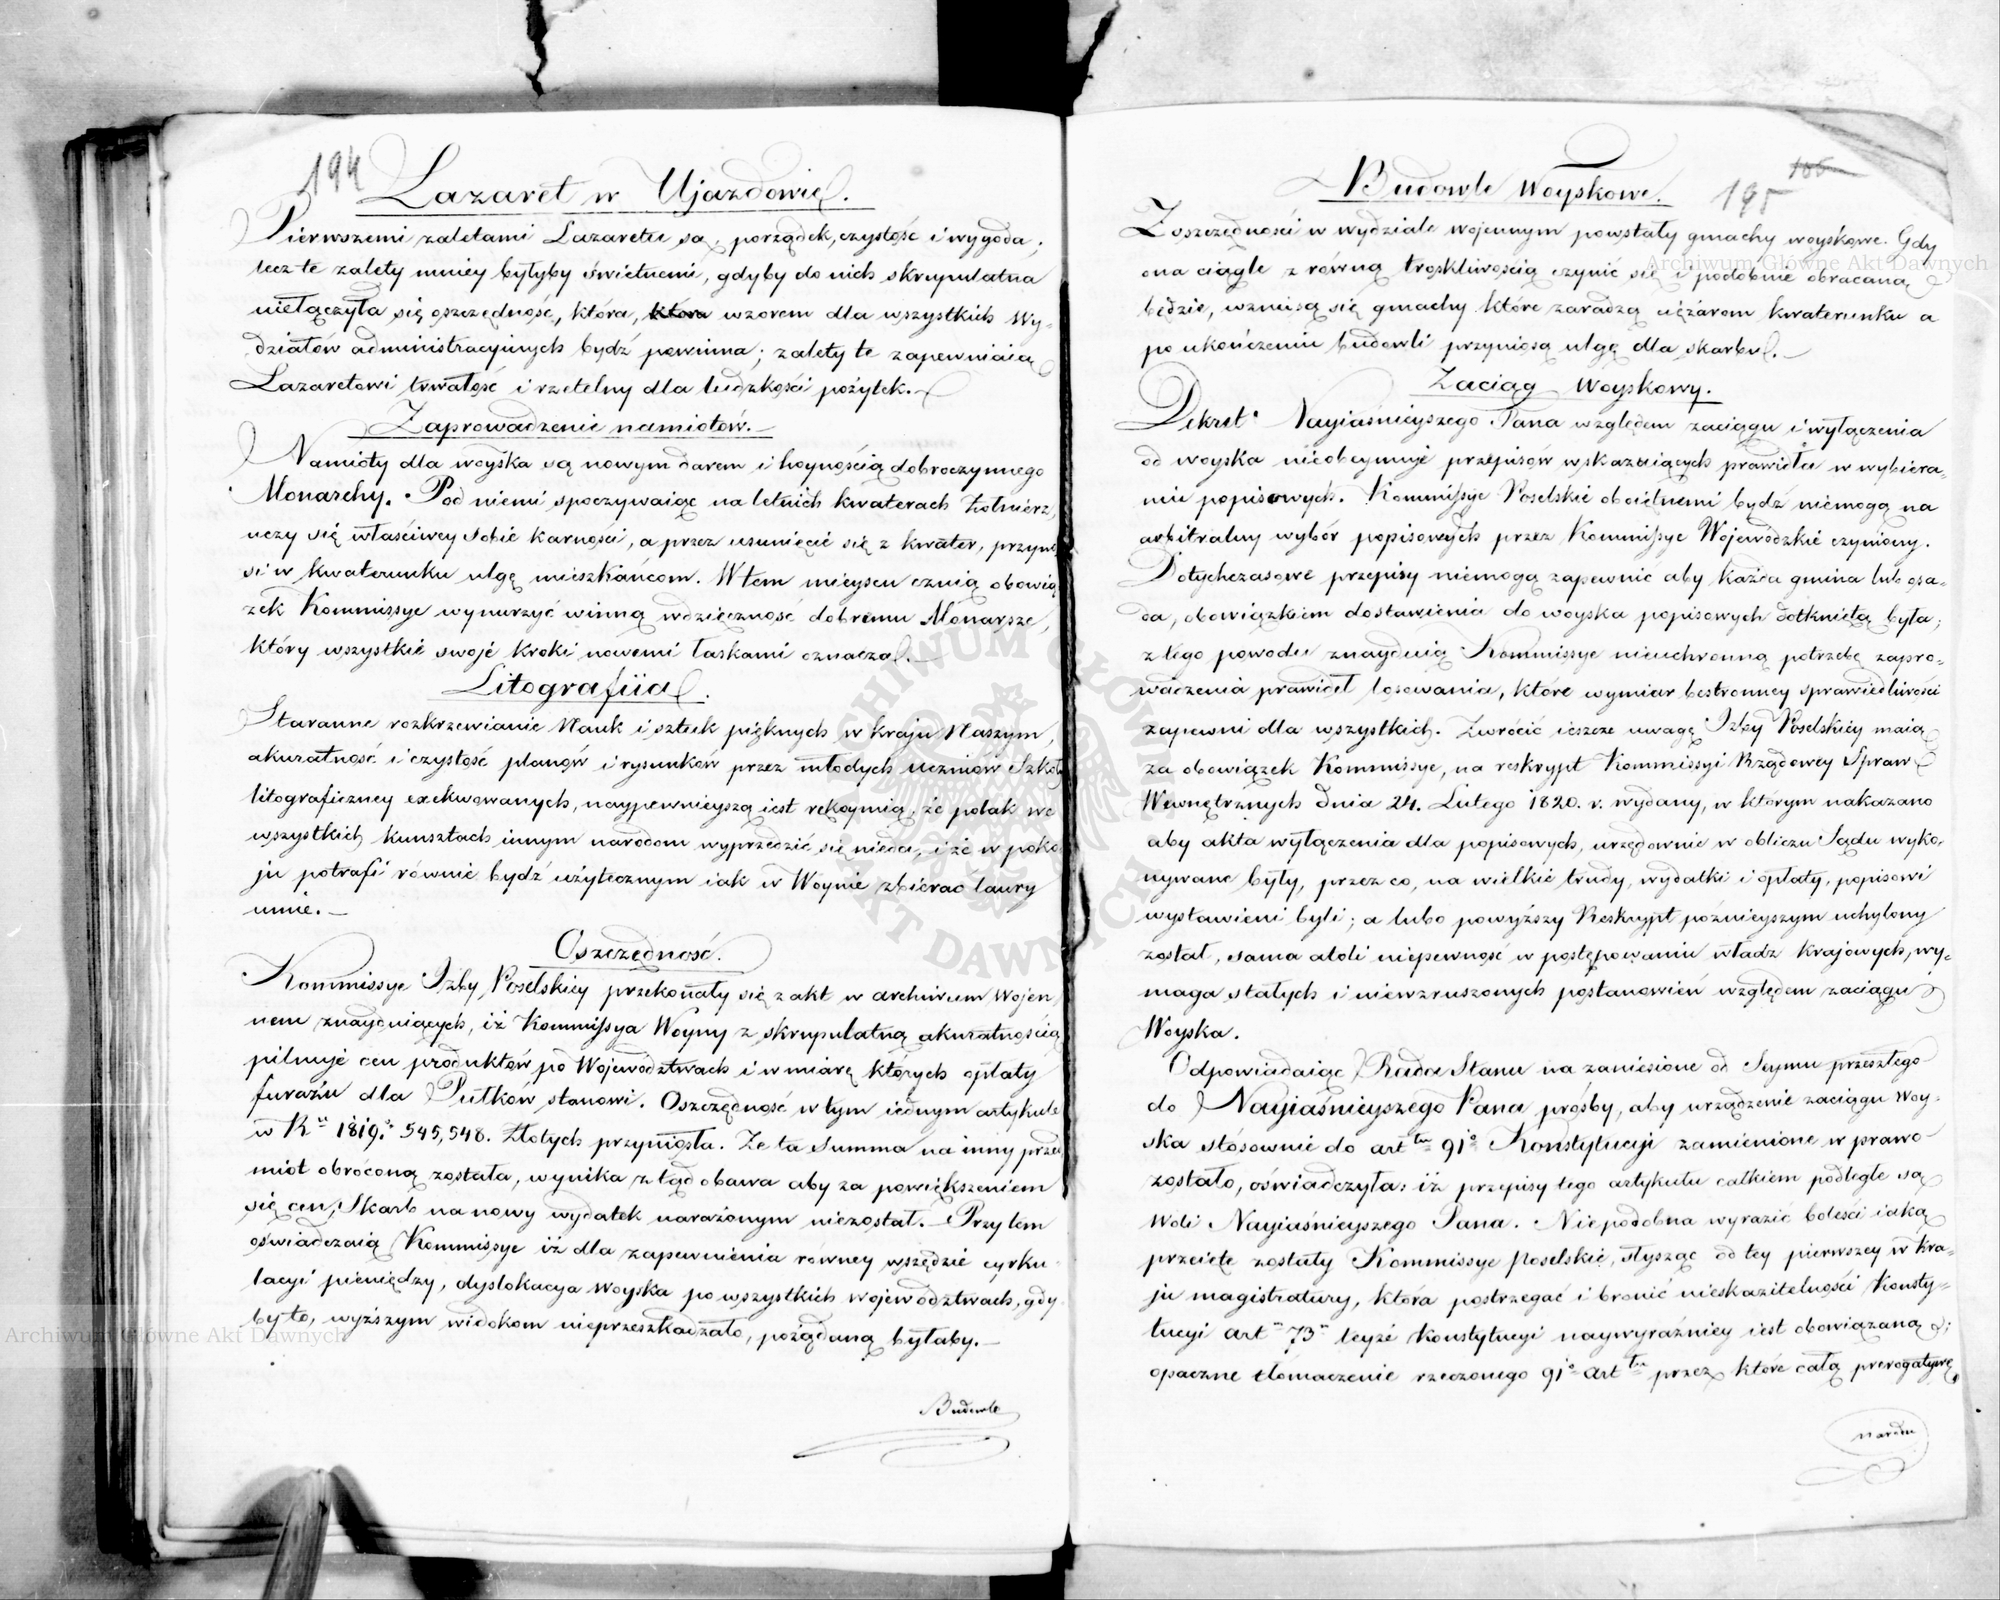 194
Lazaret w Ujazdowie.
Pierwszemi zaletami Lazaretu są, porządek, czystość i wygoda;
lecz te zalety mniey byłyby świetnemi, gdyby do nich skrupulatna
niełączyła się oszczędność, która, która wzorem dla wszystkich Wy-
działów administracyinych bydź powinna; zalety te zapewniaią
Lazaretowi trwałość i rzetelny dla ludzkości pożytek.—
Zaprowadzenie namiotów.—
Namioty dla woyska są nowym darem i hoynością dobroczynnego
Monarchy. Pod niemi spoczywaiąc na letnich kwaterach żołnierz,
uczy się właściwey sobie karności, a przez usunięcie się z kwater, przyno
si w kwaterunku ulgę mieszkańcom. W tem mieyscu czuią obowią
zek Kommissye wynurzyć winną wdzięczność dobremu Monarsze,
który wszystkie swoje kroki nowemi łaskami oznacza.—
Litografiia.
Staranne rozkrzewianie Nauk i sztuk pięknych w kraju Naszym,
akuratność i czystość planów i rysunków przez młodych uczniów Szkoły
litograficzney exekwowanych, naypewnieyszą iest rękoymią, że polak we
wszystkich kunsztach innym narodom wyprzedzić się nieda, i że w poko
ju potrafi równie bydź użytecznym iak w Woynie zbierać laury
umie.—
Oszczędność.
Kommissye Izby Poselskiey przekonały się z akt w archiwum Wojen
nem znayduiących, iż Kommissya Woyny z skrupulatną akuratnością
pilnuje cen produktów po Województwach i w miarę których opłaty
furażu dla Pułków stanowi. Oszczędność w tym iednym artykule
w Ru 1819. 545,548. Złotych przyniosła. Że ta Summa na inny przed
miot obroconą została, wynika ztąd obawa aby za powiększeniem
się cen, Skarb na nowy wydatek narażonym niezostał.— Przy tem
oświadczaią Kommissye iż dla zapewnienia równey wszędzie cyrku-
lacyi pieniędzy, dyslokacya Woyska po wszystkich Województwach, gdy
by to, wyższym widokom nieprzeszkadzało, pożądaną byłaby.—
Budowle
195
Budowle Woyskowe.
Z oszczędności w wydziale wojennym powstały gmachy woyskowe. Gdy
ona ciągle z równą troskliwością czynić się i podobnie obracaną
będzie, wzniosą się gmachy które zaradzą ciężarom kwaterunku a
po ukończeniu budowli przyniosą ulgę dla skarbu.—
Zaciąg Woyskowy.
Dekret Nayiaśnieyszego Pana względem zaciągu i wyłączenia
od woyska nieobeymuje przepisów wskazuiących prawidła w wybiera-
niu popisowych. Kommissye Poselskie obojętnemi bydź niemogą na
arbitralny wybór popisowych przez Kommissye Wojewódzkie czyniony.
Dotychczasowe przepisy niemogą zapewnić aby każda gmina lub osa-
da, obowiązkiem dostawienia do woyska popisowych dotkniętą była;
z tego powodu znayduią Kommissye nieuchronną potrzebę zapro-
wadzenia prawideł losowania, które wymiar bestronney sprawiedliwości
zapewni dla wszystkich. Zwrócić ieszcze uwagę Izby Poselskiey maią
za obowiązek Kommissye, na reskrypt Kommissyi Rządowey Spraw
Wewnętrznych dnia 24. Lutego 1820. r. wydany, w którym nakazano
aby akta wyłączenia dla popisowych, urzędownie w obliczu Sądu wyko-
nywane były, przez co, na wielkie trudy, wydatki i opłaty, popisowi
wystawieni byli; a lubo powyższy Reskrypt poźnieyszym uchylony
został, sama atoli niepewność w postępowaniu władz krajowych, wy-
maga stałych i niewzruszonych postanowień względem zaciągu
Woyska.
Odpowiadaiąc Rada Stanu na zaniesione od Seymu przeszłego
do Nayiaśnieyszego Pana prośby, aby urządzenie zaciągu Woy-
ska stósownie do arttu 91o Konstytucyi zamienione w prawo
zostało, oświadczyła: iż przepisy tego artykułu całkiem podległe są
Woli Nayiaśnieyszego Pana. Niepodobna wyrazić boleści iaką
przeięte zostały Kommissye Poselskie, słysząc od tey pierwszey w Kra-
ju magistratury, która postrzegać i bronić nieskazitelności Konsty-
tucyi art 73 teyże Konstytucyi naywyraźniey iest obowiązaną;
opaczne tłomaczenie rzeczonego 91o arttu przez które całą prerogatywę
narodu
Archiwum Główne Akt Dawnych
Archiwum Główne Akt Dawnych
ARCHIWUM GŁÓWNE AKT DAWNYCH